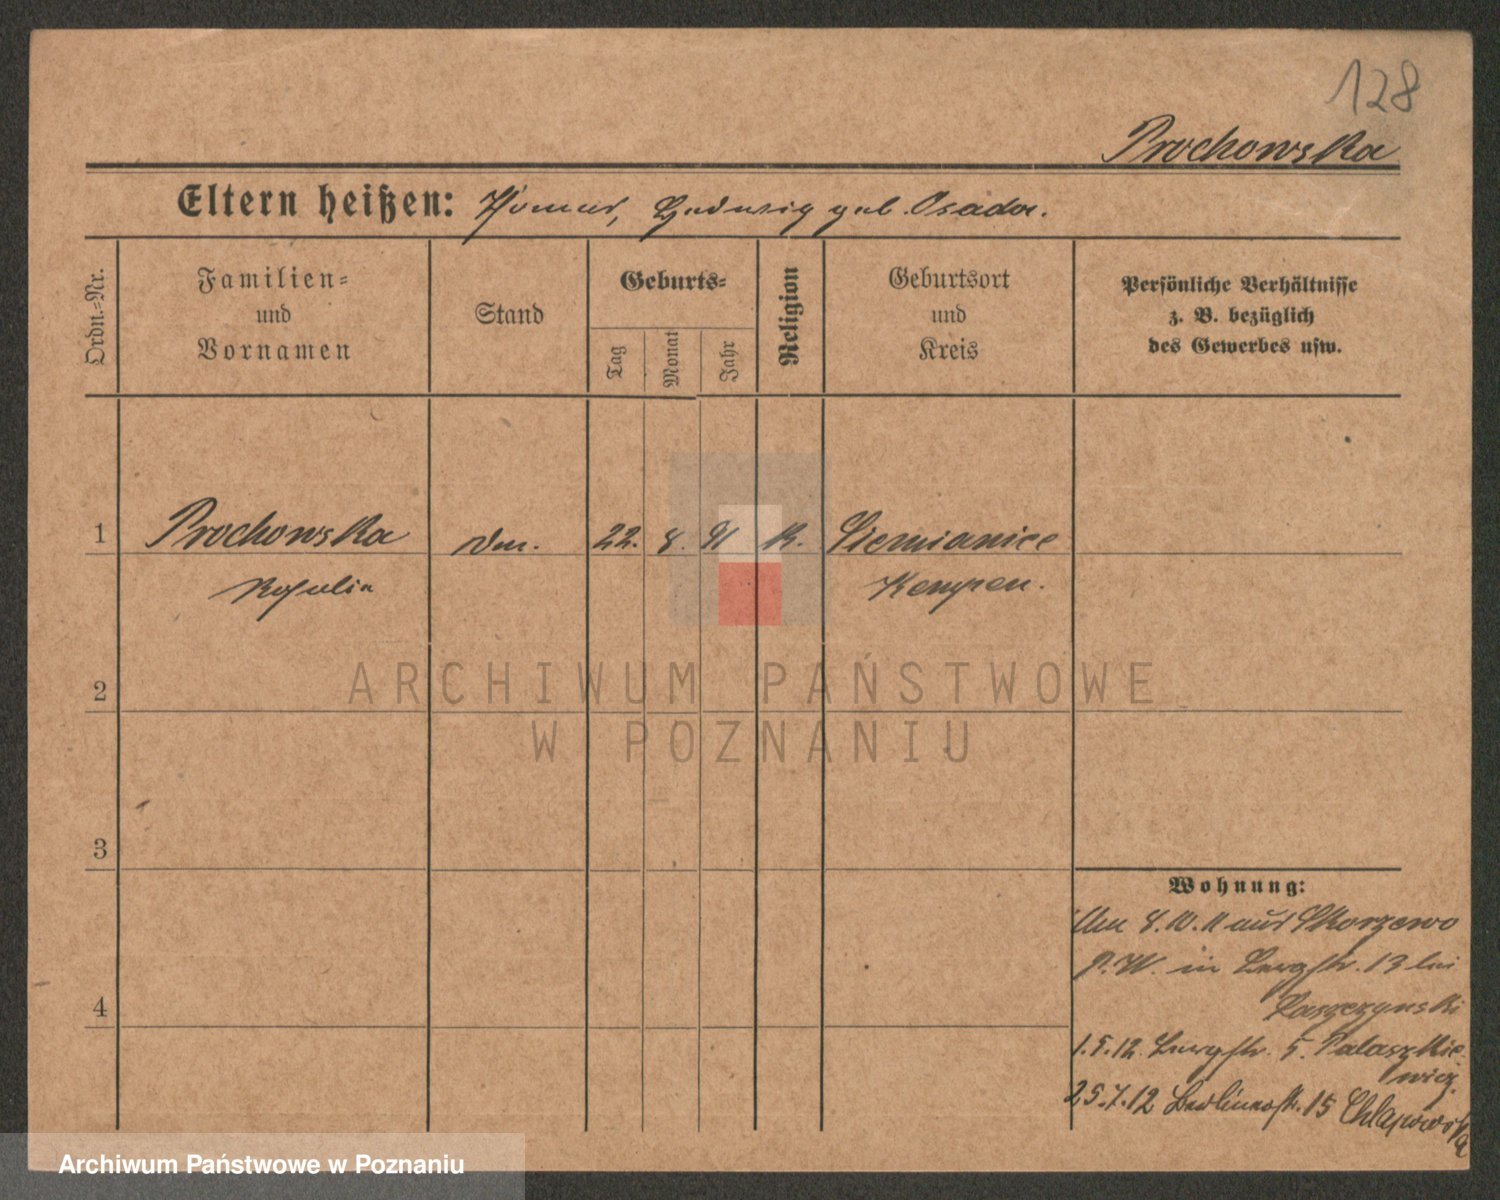 128
Prochowska
Eltern heißen: Hedwig geb. Osada.
Ordn.-Nr.
Familien-
und
Vornamen
Stand
Geburts-
Tag
Monat
Jahr
Religion
Geburtsort
und
Kreis
Persönliche Verhältnisse
z. B. bezüglich
des Gewerbes usw.
1 Prochowska 22. 8. 91 K. Siemianice
Rosalia Kempen.
ARCHIWUM PAŃSTWOWE
W POZNANIU
2
3
4
Wohnung:
8.10.11 aus Skorzewo
P.W. in Bergstr. 13 bei
Kaszczynski
1.5.12. Bergstr. 5. Palaszkie-
wicz.
25.7.12 Berlinerstr. 15 Chlapowska
Archiwum Państwowe w Poznaniu